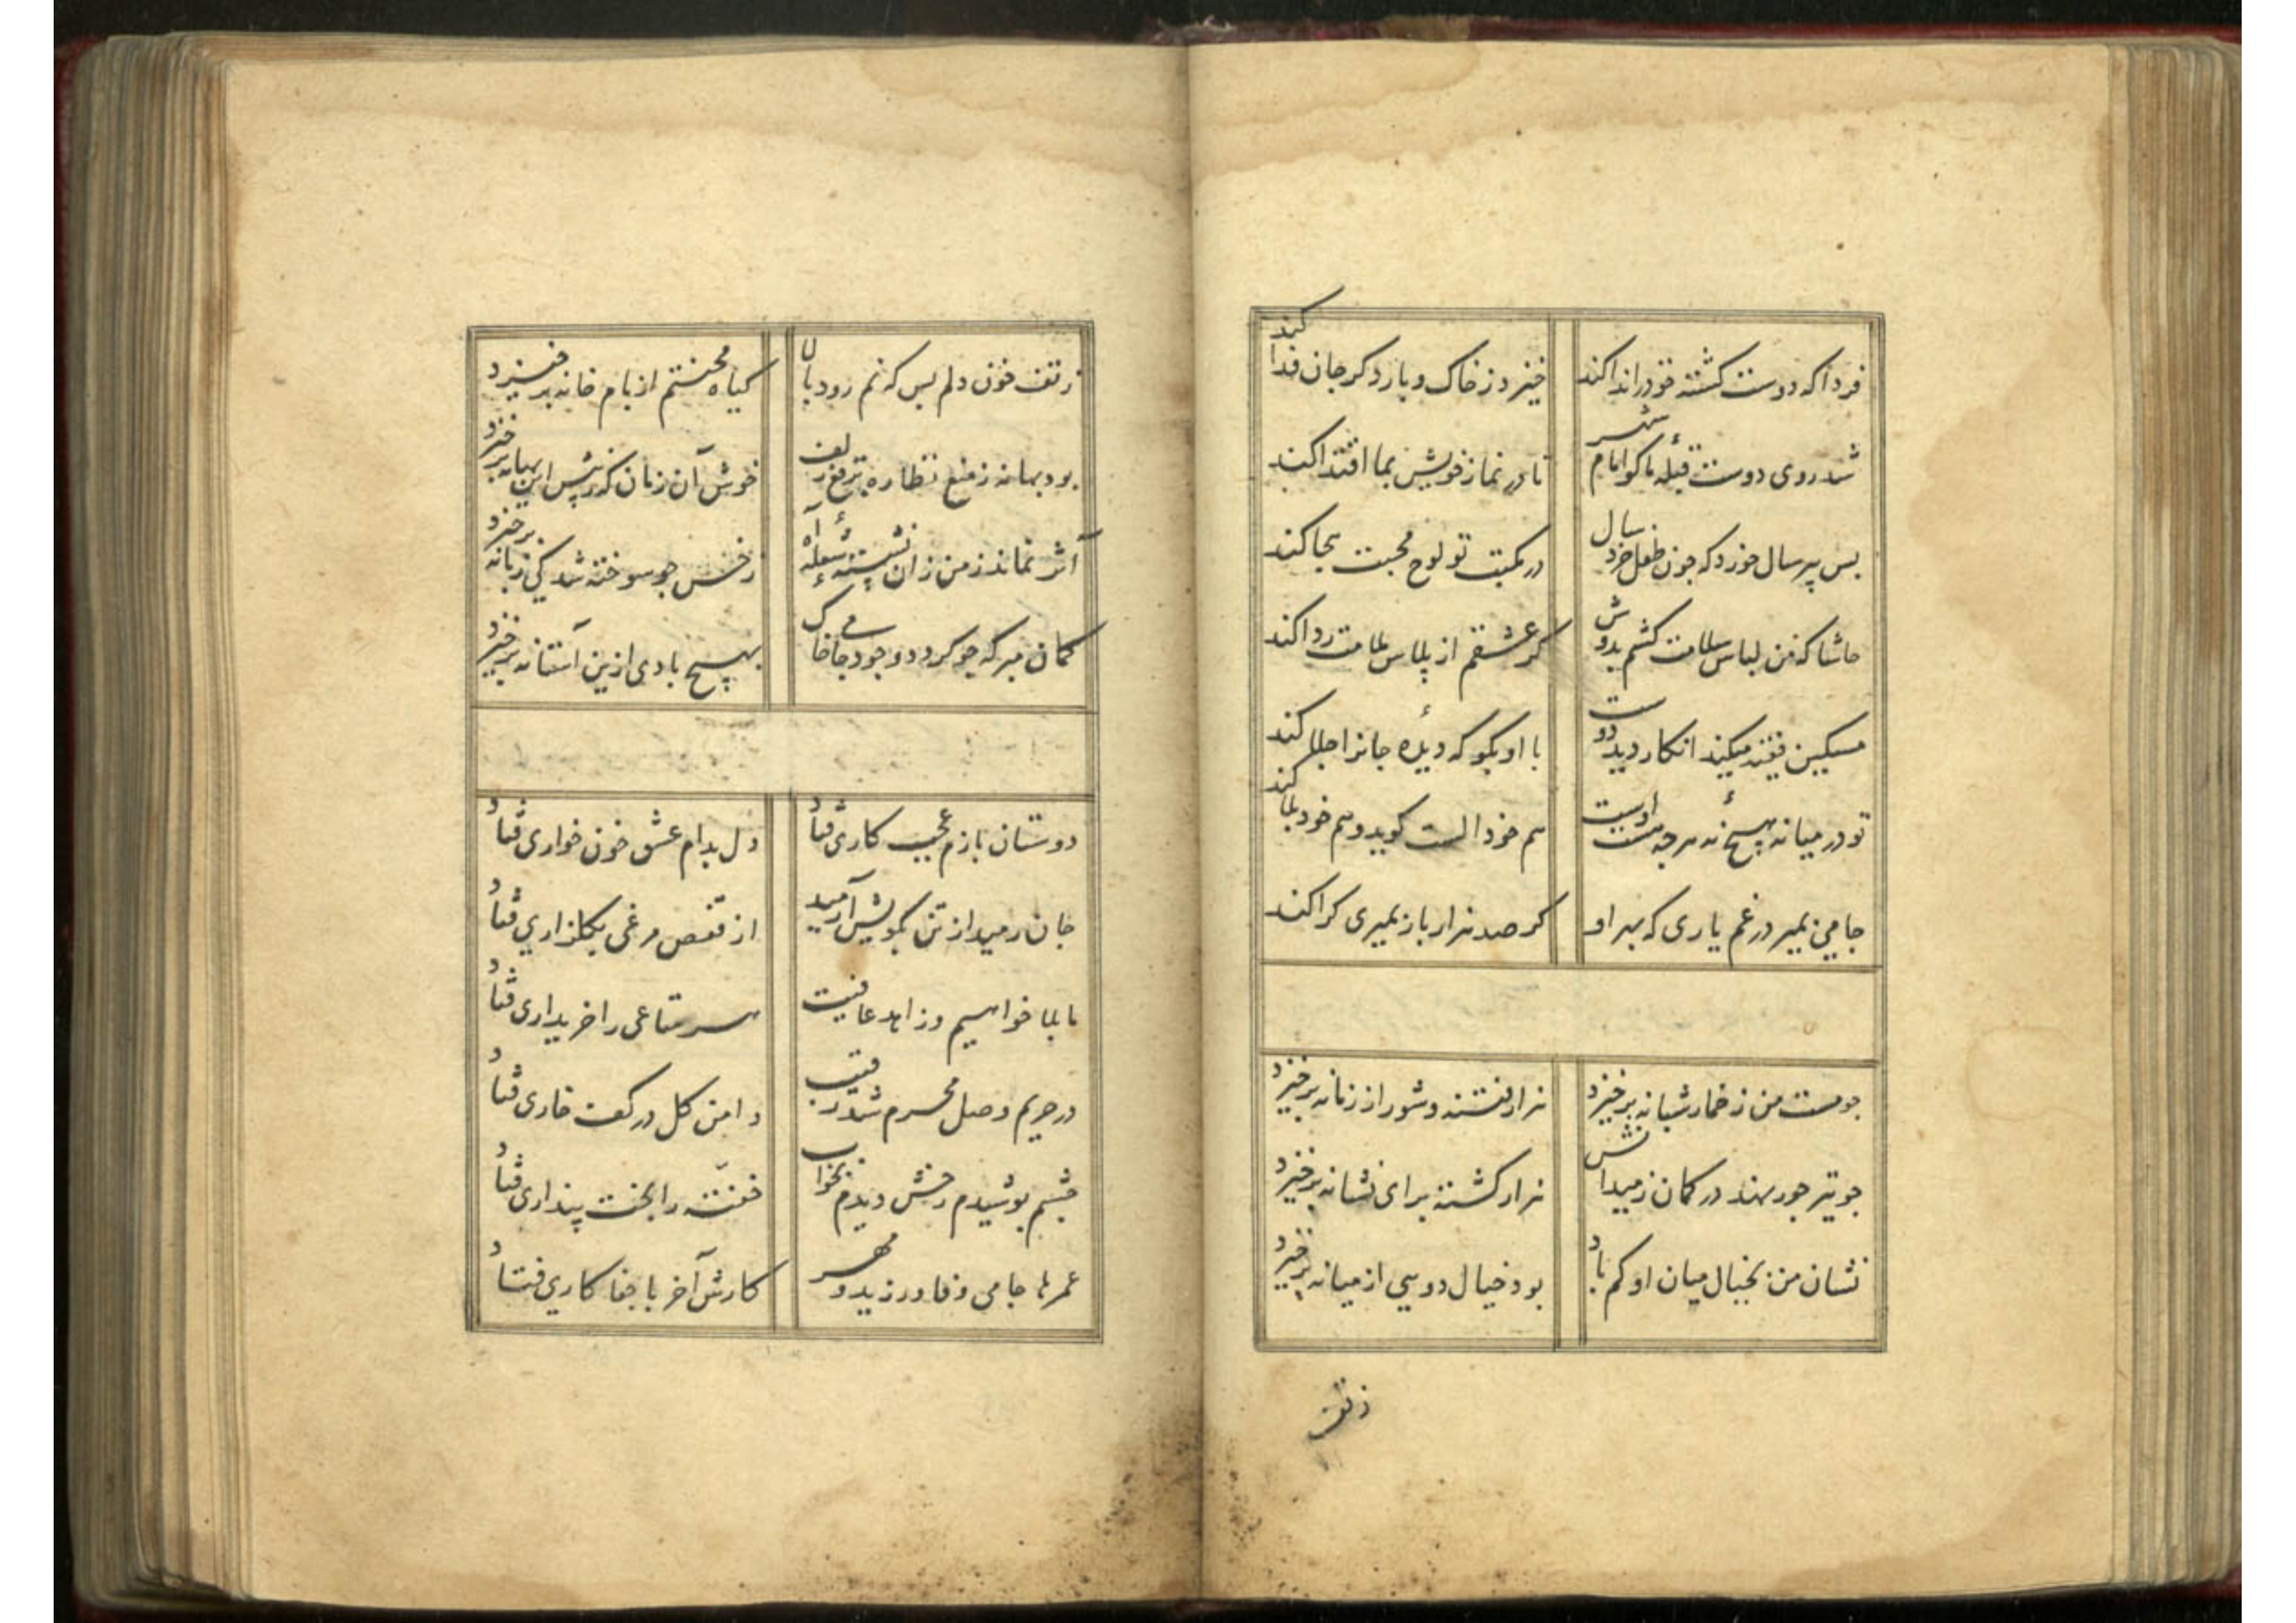 فردا که دوست کشته خود را ندا کند
خیزد ز خاک و بار دکر جان فدا کند
شد روی دوست قبله ما کو امام شهر
تا در نماز خویش بما اقتدا کند
بس پیر سال خورد که جون طفل خرد سال
در مکتب تو لوح محبت هجا کند
حاشا که من لباس سلامت کشم بدوش
کر عشقم از پلاس ملامت ردا کند
مسکین فقیه میکند انکار دید دوست
با او بکو که دیدهٔ جانرا جلا کند
تو در میانه هیچ نهٔ هرجه هست اوست
هم خود الست کوید و هم خود بلا کند
جامی بمیر در غم یاری که بهر او
کر صد هزار بار بمیری کرا کند
جو مست من ز خمار شبانه برخیزد
هزار فتنه و شور از زمانه برخیزد
جو تیر جور نهد در کمان ز میدانش
هزار کشته برای نشانه برخیزد
نشان من بخیال میان او کم باد
بود خیال دوئی از میانه برخیزد
ز تف
ز تف خون دلم بس که نم رود بالا
کیاه محنتم از بام خانه برخیزد
بود بهانه ز منع نظاره برقع زلف
خوش آن زمان که ز پیش این بهانه برخیزد
اثر نماند ز من زان نشسته شعلهٔ آه
ز خس جو سوخته شد کی زبانه برخیزد
کمان مبر که جو کردد وجود جا خاک
بهیچ بادی ازین آستانه برخیزد
دوستان بازم عجب کاری فتاد
دل بدام عشق خون خواری فتاد
جان رمید از تن بکویش آرمید
از قفص مرغی بکلزاری فتاد
ما بلا خواهیم و زاهد عافیت
هر متاعی را خریداری فتاد
در حریم وصل محرم شد رقیب
دامن کل در کف خاری فتاد
چشم پوشیدم رخش دیدم بخواب
خفته را بخت پنداری فتاد
عمرها جامی وفا ورزید و مهر
کارش آخر با جفا کاری فتاد